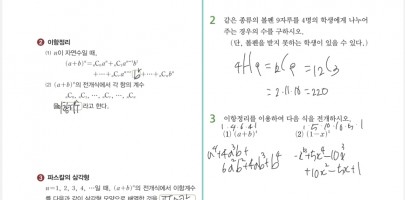 2 이항정리
(1) n이 자연수일 때,
(a+b)ⁿ=ₙC₀aⁿ+ₙC₁aⁿ⁻¹b¹
+⋯+ₙCᵣaⁿ⁻ʳbʳ+⋯+ₙCₙbⁿ
(2) (a+b)ⁿ의 전개식에서 각 항의 계수
ₙC₀, ₙC₁, ⋯, ⋯, ₙCₙ
라고 한다.
3 파스칼의 삼각형
n=1, 2, 3, 4, ⋯일 때, (a+b)ⁿ의 전개식에서 이항계수
를 다음과 같이 삼각형 모양으로 배열한 것을
2 같은 종류의 볼펜 9자루를 4명의 학생에게 나누어
주는 경우의 수를 구하시오.
(단, 볼펜을 받지 못하는 학생이 있을 수 있다.)
4H9=12C9=12C3
=2·11·10=220
3 이항정리를 이용하여 다음 식을 전개하시오.
1 4 6 4 1 1 5 10 10 5 1
(1) (a+b)⁴ (2) (1-x)⁵
a⁴+4a³b+
6a²b²+4ab³+b⁴
-x⁵+5x⁴-10x³
+10x²-5x+1